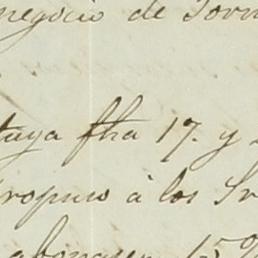 negocio de Torn
tuya fha 17. y
propuso à los Sr
abonasen 15 %